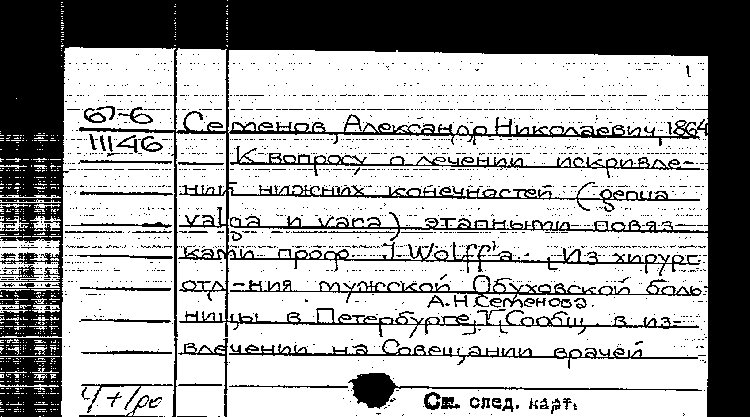 1
67-6
11146
Семенов, Александр Николаевич, 1864
К вопросу о лечении искривле-
ний нижних конечностей (genua
valga и vara) этапными повяз-
ками проф. J. Wolff'a. [Из хирург.
отд-ния мужской Обуховской боль-
А.Н. Семенова.
ницы в Петербурге]. [Сообщ. в из-
влечении на Совещании врачей
См. след. карт.